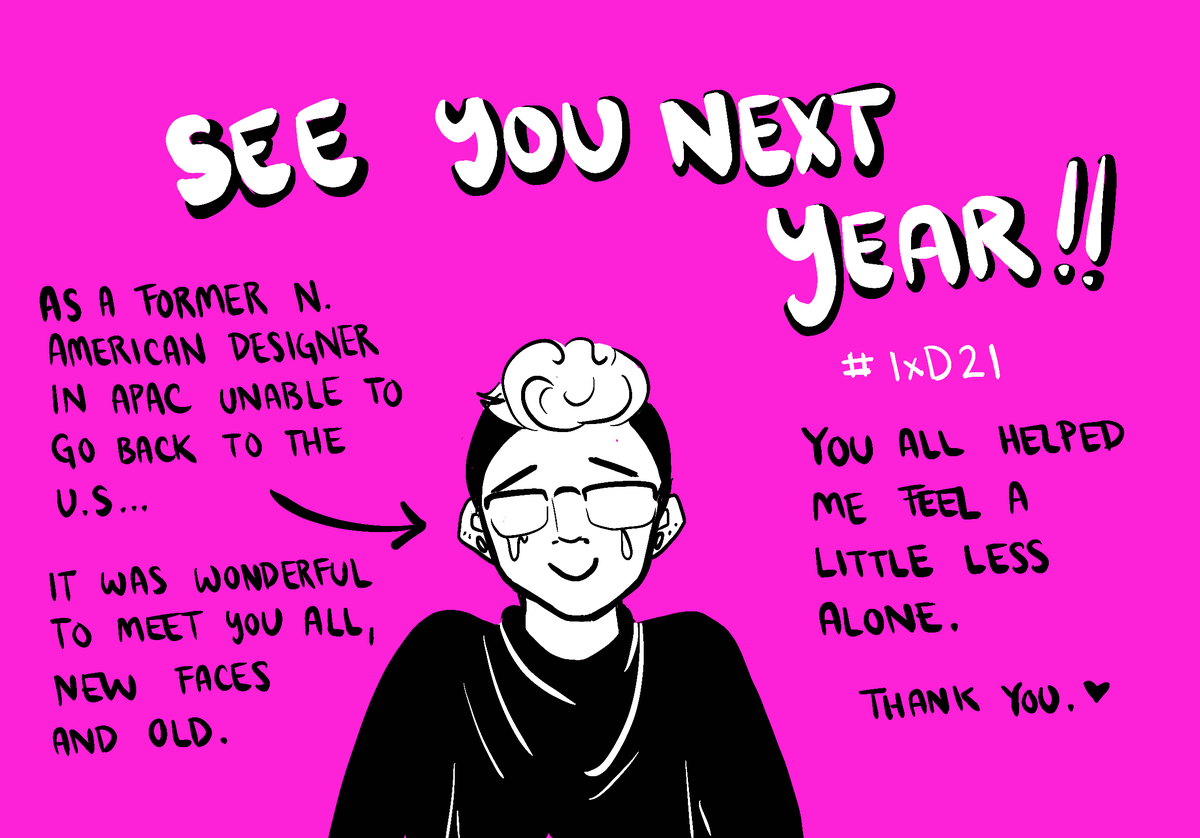 SEE YOU NEXT
YEAR!!
#IxD21
AS A FORMER N.
AMERICAN DESIGNER
IN APAC UNABLE TO
GO BACK TO THE
U.S...
IT WAS WONDERFUL
TO MEET YOU ALL,
NEW FACES
AND OLD.
YOU ALL HELPED
ME FEEL A
LITTLE LESS
ALONE.
THANK YOU. ♥